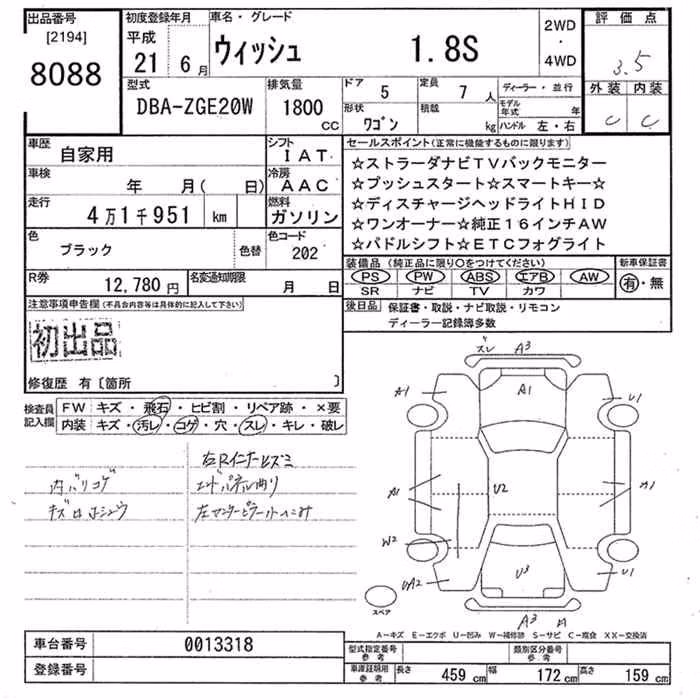 出品番号 [2194] 8088
初度登録年月 平成 21 6月
車名・グレード ウィッシュ 1.8S
2WD・4WD
評価点 3.5
外装 内装
C C
型式 DBA-ZGE20W
排気量 1800 CC
ドア 5
定員 7人
ディーラー・並行
モデル年式 年
形状 ワゴン
積載 kg
ハンドル 左・右
車歴 自家用
シフト IAT
セールスポイント(正常に機能するものに限ります)
☆ストラーダナビTVバックモニター
☆プッシュスタート☆スマートキー☆
☆ディスチャージヘッドライトHID
☆ワンオーナー☆純正16インチAW
☆パドルシフト☆ETCフォグライト
車検 年 月( 日)
冷房 AAC
走行 4万1千951 km
燃料 ガソリン
色 ブラック 色替
色コード 202
装備品(純正品に限り○をつけてください)
新車保証書
PS PW ABS エアB AW
SR ナビ TV カワ
有・無
R券 12,780円
名変通知期限 月 日
後日品 保証書・取説・ナビ取説・リモコン
ディーラー記録簿多数
注意事項申告欄(不具合内容等は具体的に記入して下さい)
初出品
修復歴 有〔箇所 〕
検査員記入欄
FW キズ・飛石・ヒビ割・リペア跡・×要
内装 キズ・汚レ・コゲ・穴・スレ・キレ・破レ
右Rインナーヒズミ
内バリコゲ
エンドパネル曲り
キズ
左センターピラー
スレ A3
A1 A1 U1
A1 U2 A1
W2
UA2 U3 U1
A3 A
スペア
A-キズ E-エクボ U-凹み W-補修跡 S-サビ C-腐食 XX-交換済
車台番号 0013318
登録番号
型式指定番号 参考
類別区分番号 参考
車庫証明用 参考 長さ 459cm 幅 172cm 高さ 159cm